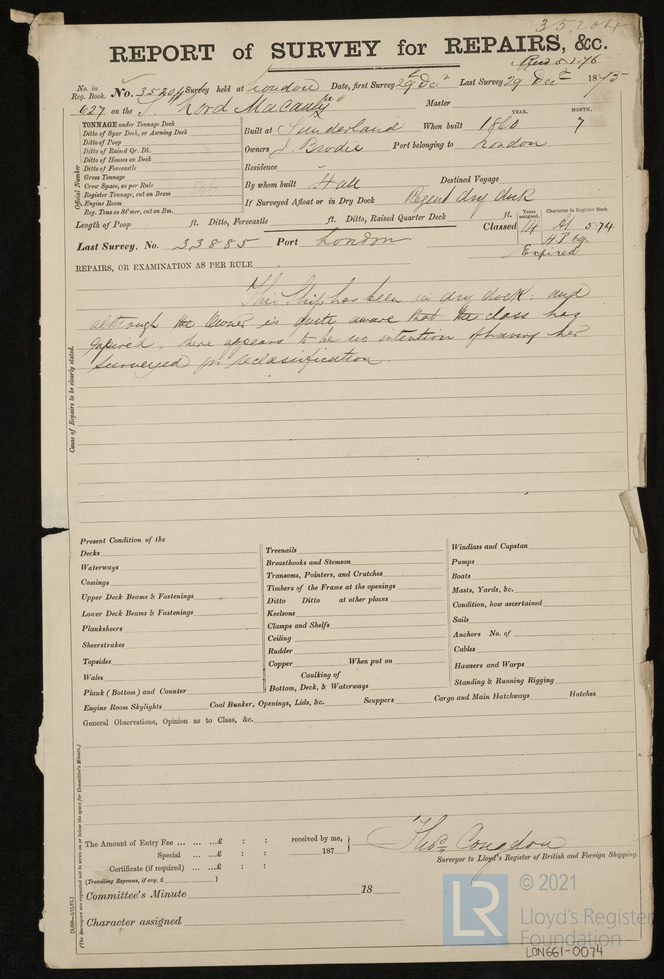 35204
REPORT of SURVEY for REPAIRS, &c.
Recd 5.1.76
No. in Reg. Book. No. 35204 Survey held at London Date, first Survey 29 Decr Last Survey 29 Decr 1875
627 on the S "Lord Macaulay" Master
TONNAGE under Tonnage Deck
Ditto of Spar Deck, or Awning Deck
Ditto of Poop
Ditto of Raised Qr. Dk.
Ditto of Houses on Deck
Ditto of Forecastle
Gross Tonnage
Crew Space, as per Rule
Register Tonnage, cut on Beam
Engine Room
Reg. Tons as St'mer, cut on Bm.
Official Number
Built at Sunderland When built YEAR. 1860 MONTH. 7
Owners J. Brodie Port belonging to London
Residence
By whom built Hall Destined Voyage
If Surveyed Afloat or in Dry Dock Regent dry dock
Length of Poop ft. Ditto, Forecastle ft. Ditto, Raised Quarter Deck ft.
Classed Years assigned. 14 Character in Register Book. A1 5-74
Expired
Last Survey, No. 33885 Port London
REPAIRS, OR EXAMINATION AS PER RULE
This Ship has been in dry dock, and
although the Owner is quite aware that the class has
expired, there appears to be no intention of having her
surveyed for reclassification.
Cause of Repairs to be clearly stated.
Present Condition of the
Decks
Waterways
Comings
Upper Deck Beams & Fastenings
Lower Deck Beams & Fastenings
Planksheers
Sheerstrakes
Topsides
Wales
Plank (Bottom) and Counter
Treenails
Breasthooks and Stemson
Transoms, Pointers, and Crutches
Timbers of the Frame at the openings
Ditto Ditto at other places
Keelsons
Clamps and Shelfs
Ceiling
Rudder
Copper When put on
Caulking of
Bottom, Deck, & Waterways
Windlass and Capstan
Pumps
Boats
Masts, Yards, &c.
Condition, how ascertained
Sails
Anchors No. of
Cables
Hawsers and Warps
Standing & Running Rigging
Engine Room Skylights Coal Bunker, Openings, Lids, &c. Scuppers Cargo and Main Hatchways Hatches
General Observations, Opinion as to Class, &c.
The Amount of Entry Fee ... ... ...£ : : received by me,
Special ... ...£ : : 187
Certificate (if required) ... ...£ : :
(Travelling Expenses, if any, £ )
Thos. Congdon
Surveyor to Lloyd's Register of British and Foreign Shipping.
Committee's Minute 18
Character assigned
(The Surveyors are requested not to write on or below the space for Committee's Minute.)
LR
© 2021
Lloyd's Register
Foundation
LON661-0074